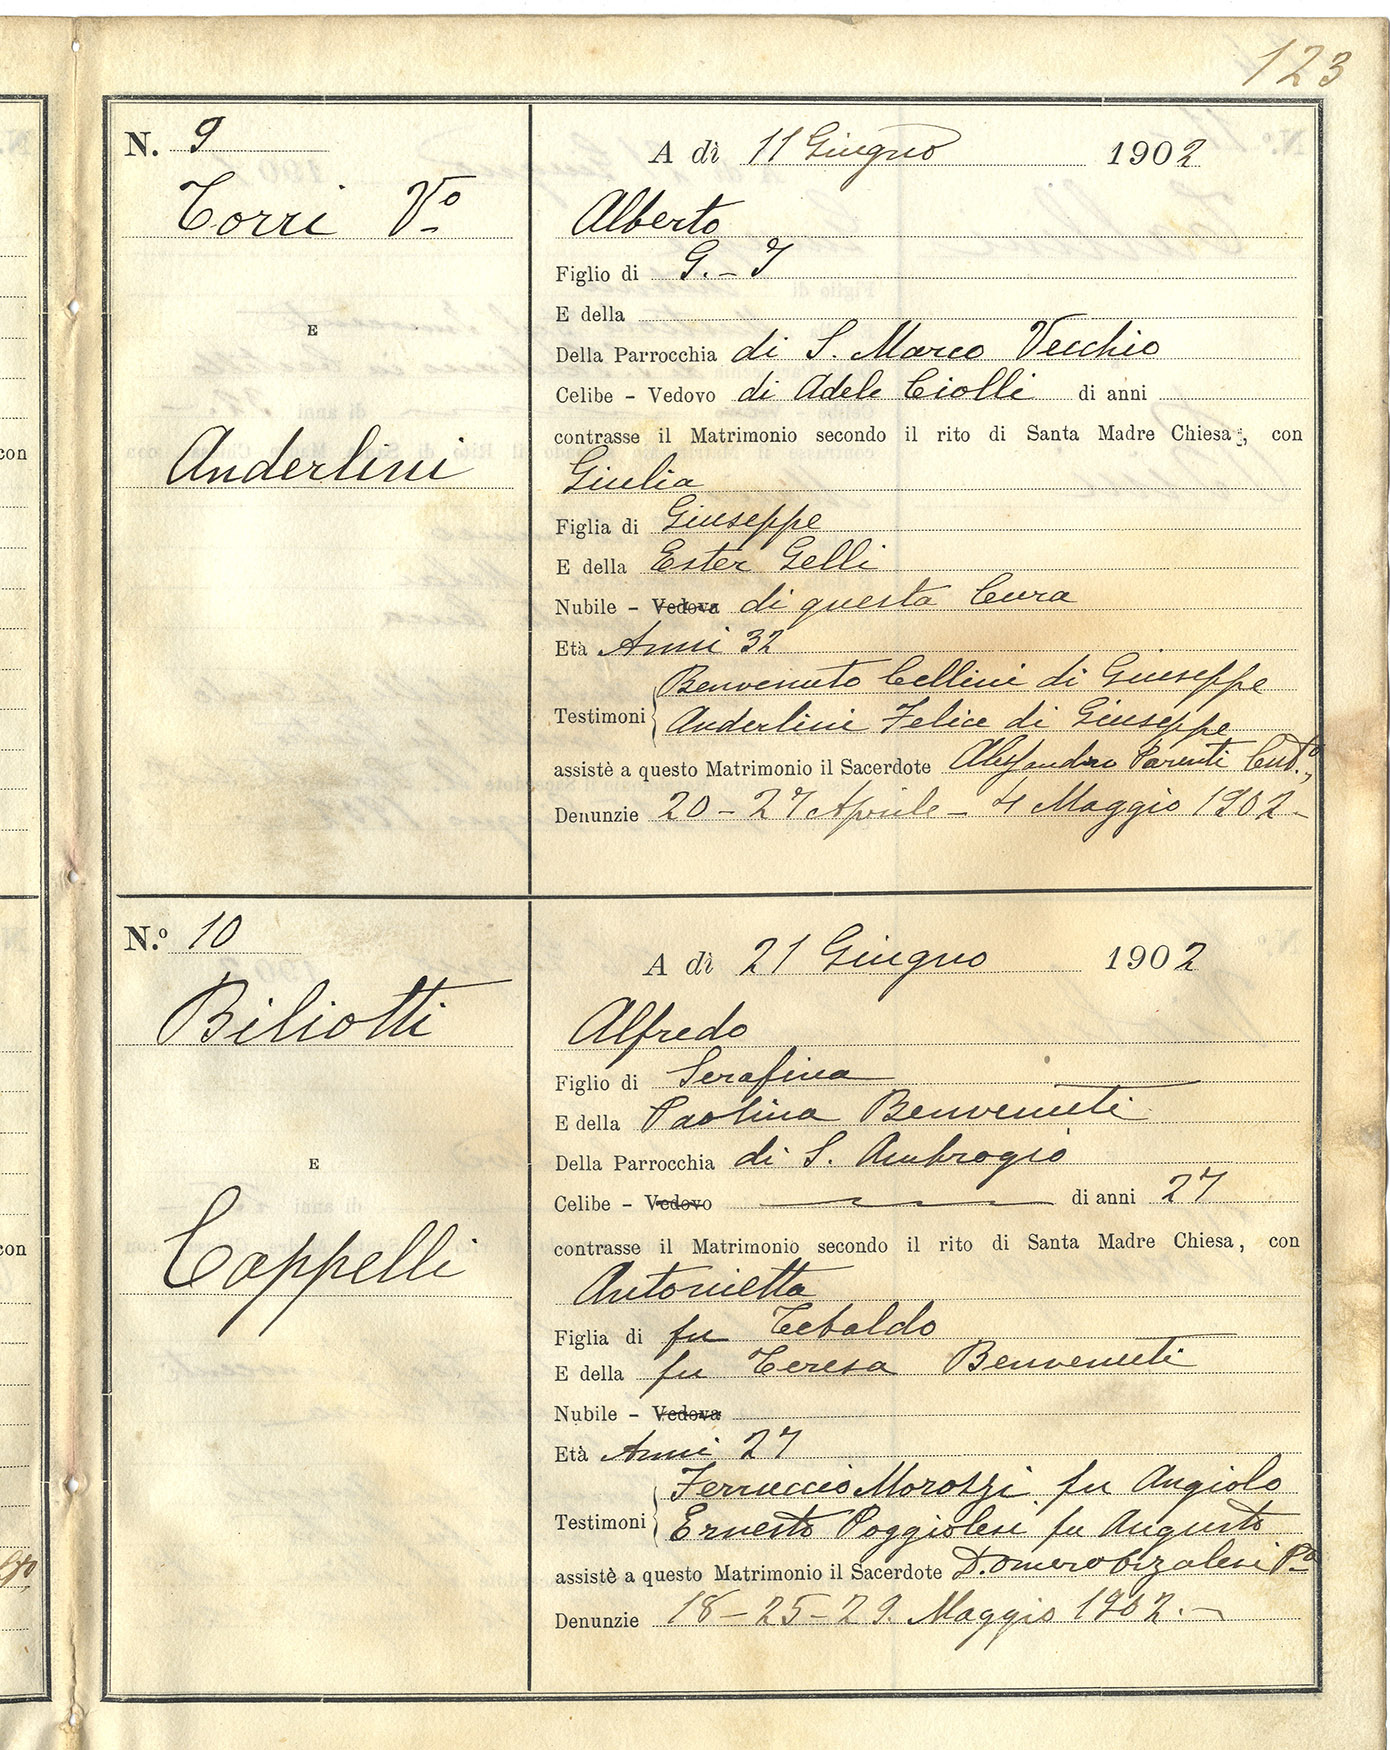 123
N. 9
A dì 11 Giugno 1902
Torri Vº
Alberto
Figlio di G. - I
E
E della
Della Parrocchia di S. Marco Vecchio
Celibe - Vedovo di Adele Ciolli di anni
contrasse il Matrimonio secondo il rito di Santa Madre Chiesa, con
Anderlini
Giulia
Figlia di Giuseppe
E della Ester Gelli
Nubile - Vedova di questa Cura
Età Anni 32
Benvenuto Cellini di Giuseppe
Testimoni
Anderlini Felice di Giuseppe
assistè a questo Matrimonio il Sacerdote Alessandro Parenti
Denunzie 20 - 27 Aprile - 4 Maggio 1902 -
N.º 10
A dì 21 Giugno 1902
Biliotti
Alfredo
Figlio di Serafina
E della Paolina Benvenuti
E
Della Parrocchia di S. Ambrogio
Celibe - Vedovo di anni 27
contrasse il Matrimonio secondo il rito di Santa Madre Chiesa, con
Cappelli
Antonietta
Figlia di fu Tebaldo
E della fu Teresa Benvenuti
Nubile - Vedova
Età Anni 27
Ferruccio Morozzi fu Angiolo
Testimoni
Ernesto Poggiolesi fu Augusto
assistè a questo Matrimonio il Sacerdote D. Omero
Denunzie 18 - 25 - 29. Maggio 1902. -
con
con